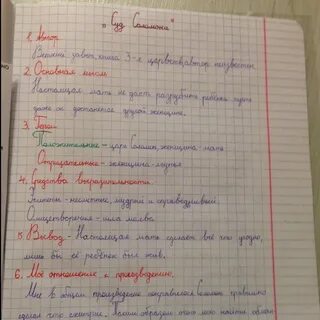 "Суд Соломона"
1. Автор
Ветхий завет, книга 3-я царств, автор неизвестен.
2. Основная мысль
Настоящая мать не даст разрубить ребёнка, пусть
даже он достанется другой женщине.
3. Герои
Положительные - царь Соломон, женщина-мать
Отрицательные - женщина-лгунья
4. Средства выразительности
Эпитеты - несметных, мудрый и справедливый
Олицетворение - шла молва
5. Вывод - Настоящая мать сделает всё что угодно,
лишь бы её ребёнок был жив.
6. Моё отношение к произведению.
Мне в общем произведение понравилось Соломон правильно
сделал что схитрил. Таким образом очень легко найти обман